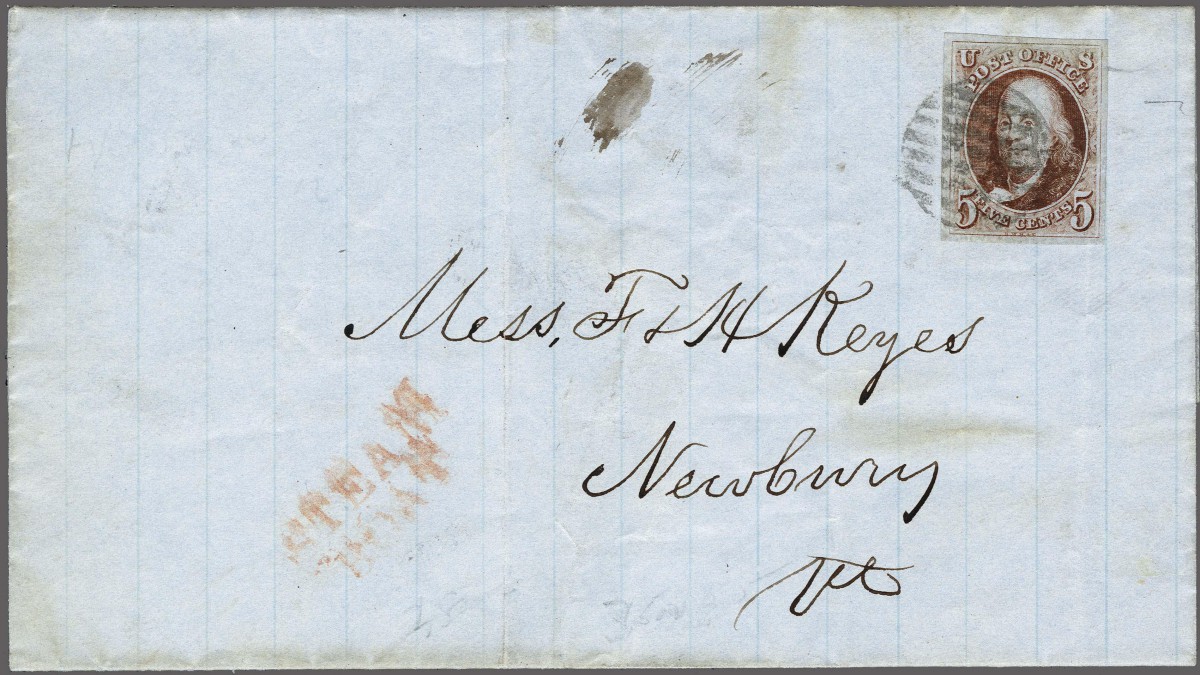 U S
POST OFFICE
FIVE CENTS
5 5
Mess, F & H Keyes
Newbury
Vt
STEAM